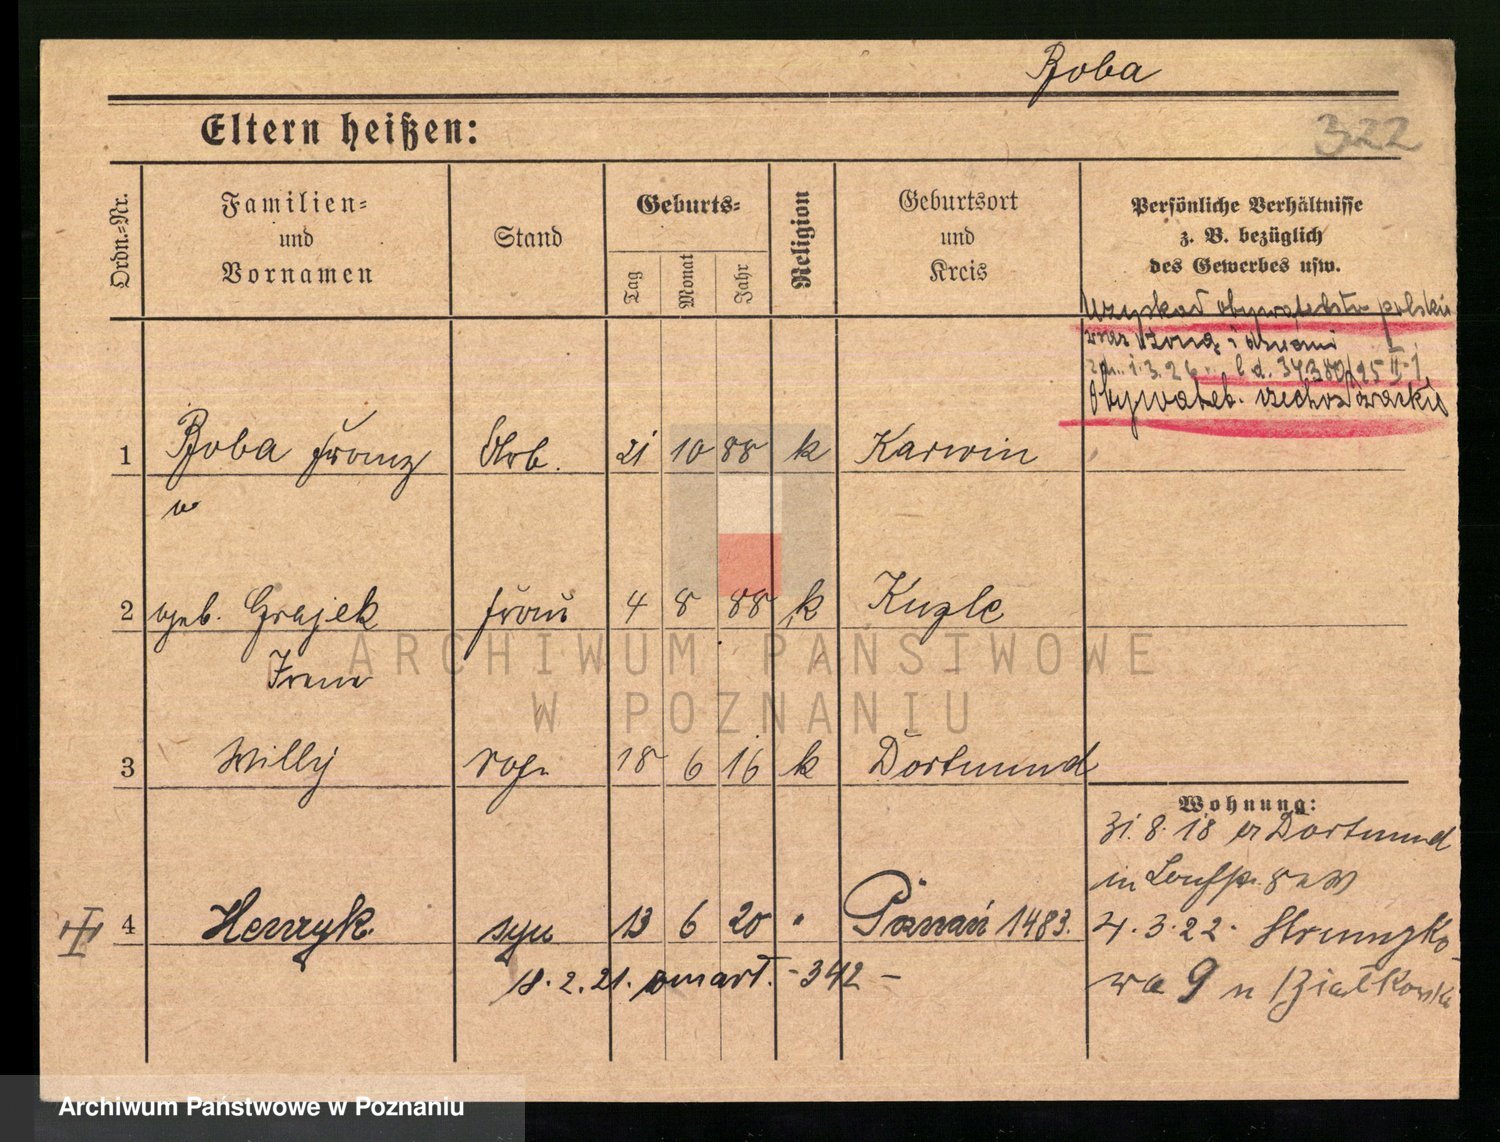 Rzoba
322
Eltern heißen:
Ordn.=Nr.
Familien=
und
Vornamen
Stand
Geburts=
Tag
Monat
Jahr
Religion
Geburtsort
und
Kreis
Persönliche Verhältnisse
z. B. bezüglich
des Gewerbes usw.
Uzyskał obywatelstwo polskie
wraz z żoną i dziećmi
1.3.26 l.d. 34380/25 II
Obywatel. czechosłowackie
1 Rzoba Franz Arb. 21 10 88 k Karwin
2 geb. Grajek Frau 4 8 88 k
Irene
3 Willy 18 6 16 k Dortmund
Wohnung:
31.8.18 Dortmund
in
4 Henryk syn 13 6 20 " Poznań 1483.
18.2.21. zmarł. - 342 -
4.3.22.
wa 9
ARCHIWUM PAŃSTWOWE
W POZNANIU
Archiwum Państwowe w Poznaniu